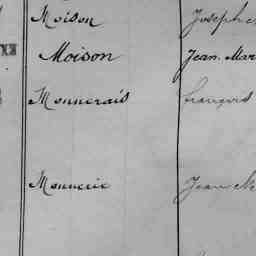 Moison Joseph
Moison Jean. Mar
Monnerais François
Monnerie Jean